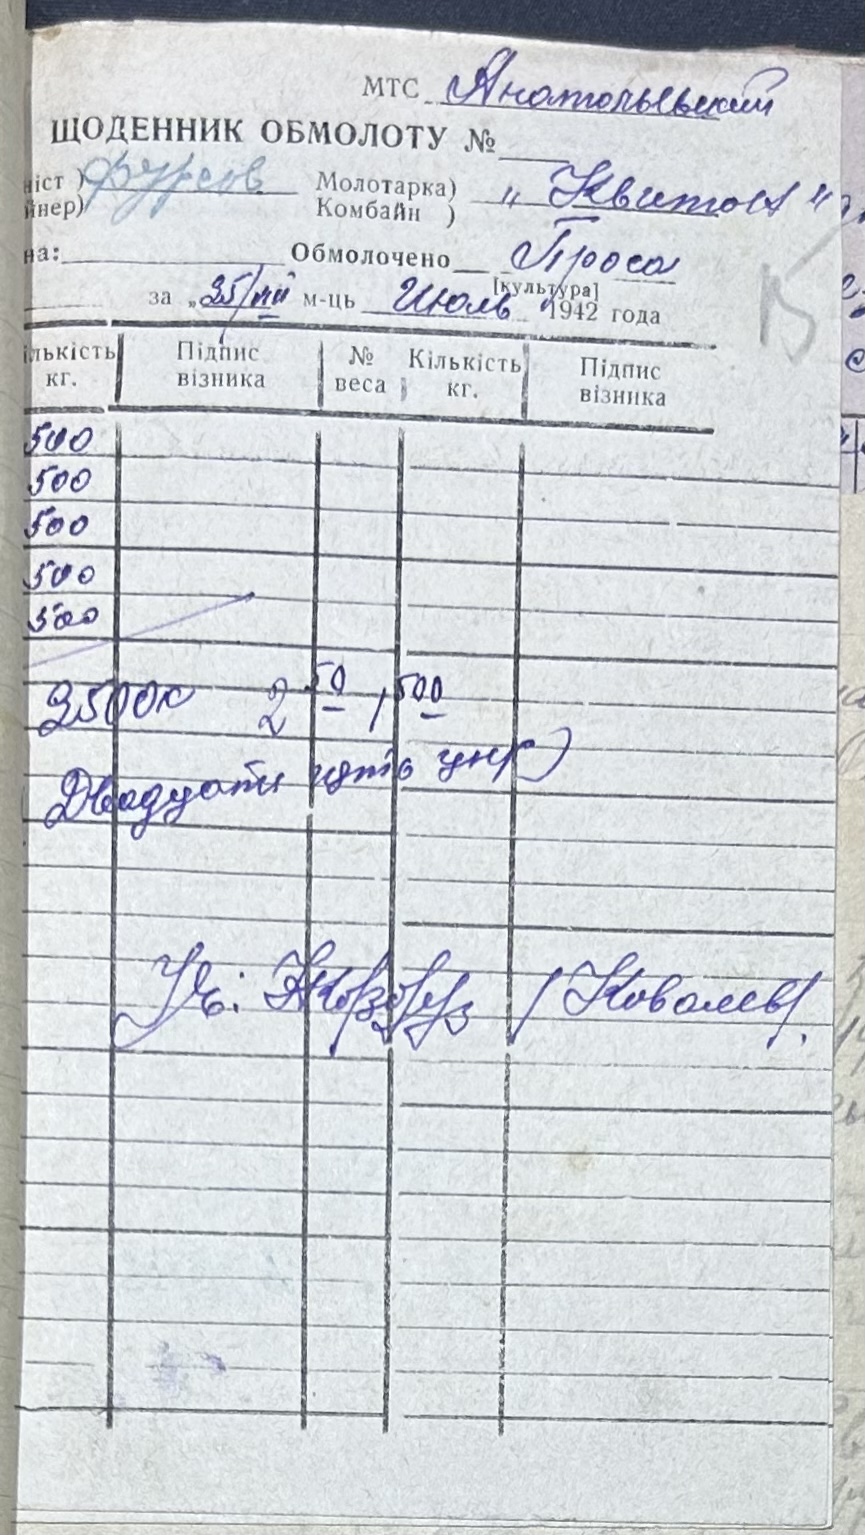 МТС Анатольевский
ЩОДЕННИК ОБМОЛОТУ №
іст ) Фурсов Молотарка)
йнер) Комбайн ) „ Квиток "
на: Обмолочено Проса
[культура]
за „25/VII м-ць Июль 1942 года
ількість Підпис № Кількість Підпис
кг. візника веса кг. візника
500
500
500
500
500
2500к 2 50 / 500
Двадцать пять цнт)
Уч: /Ковалев/.